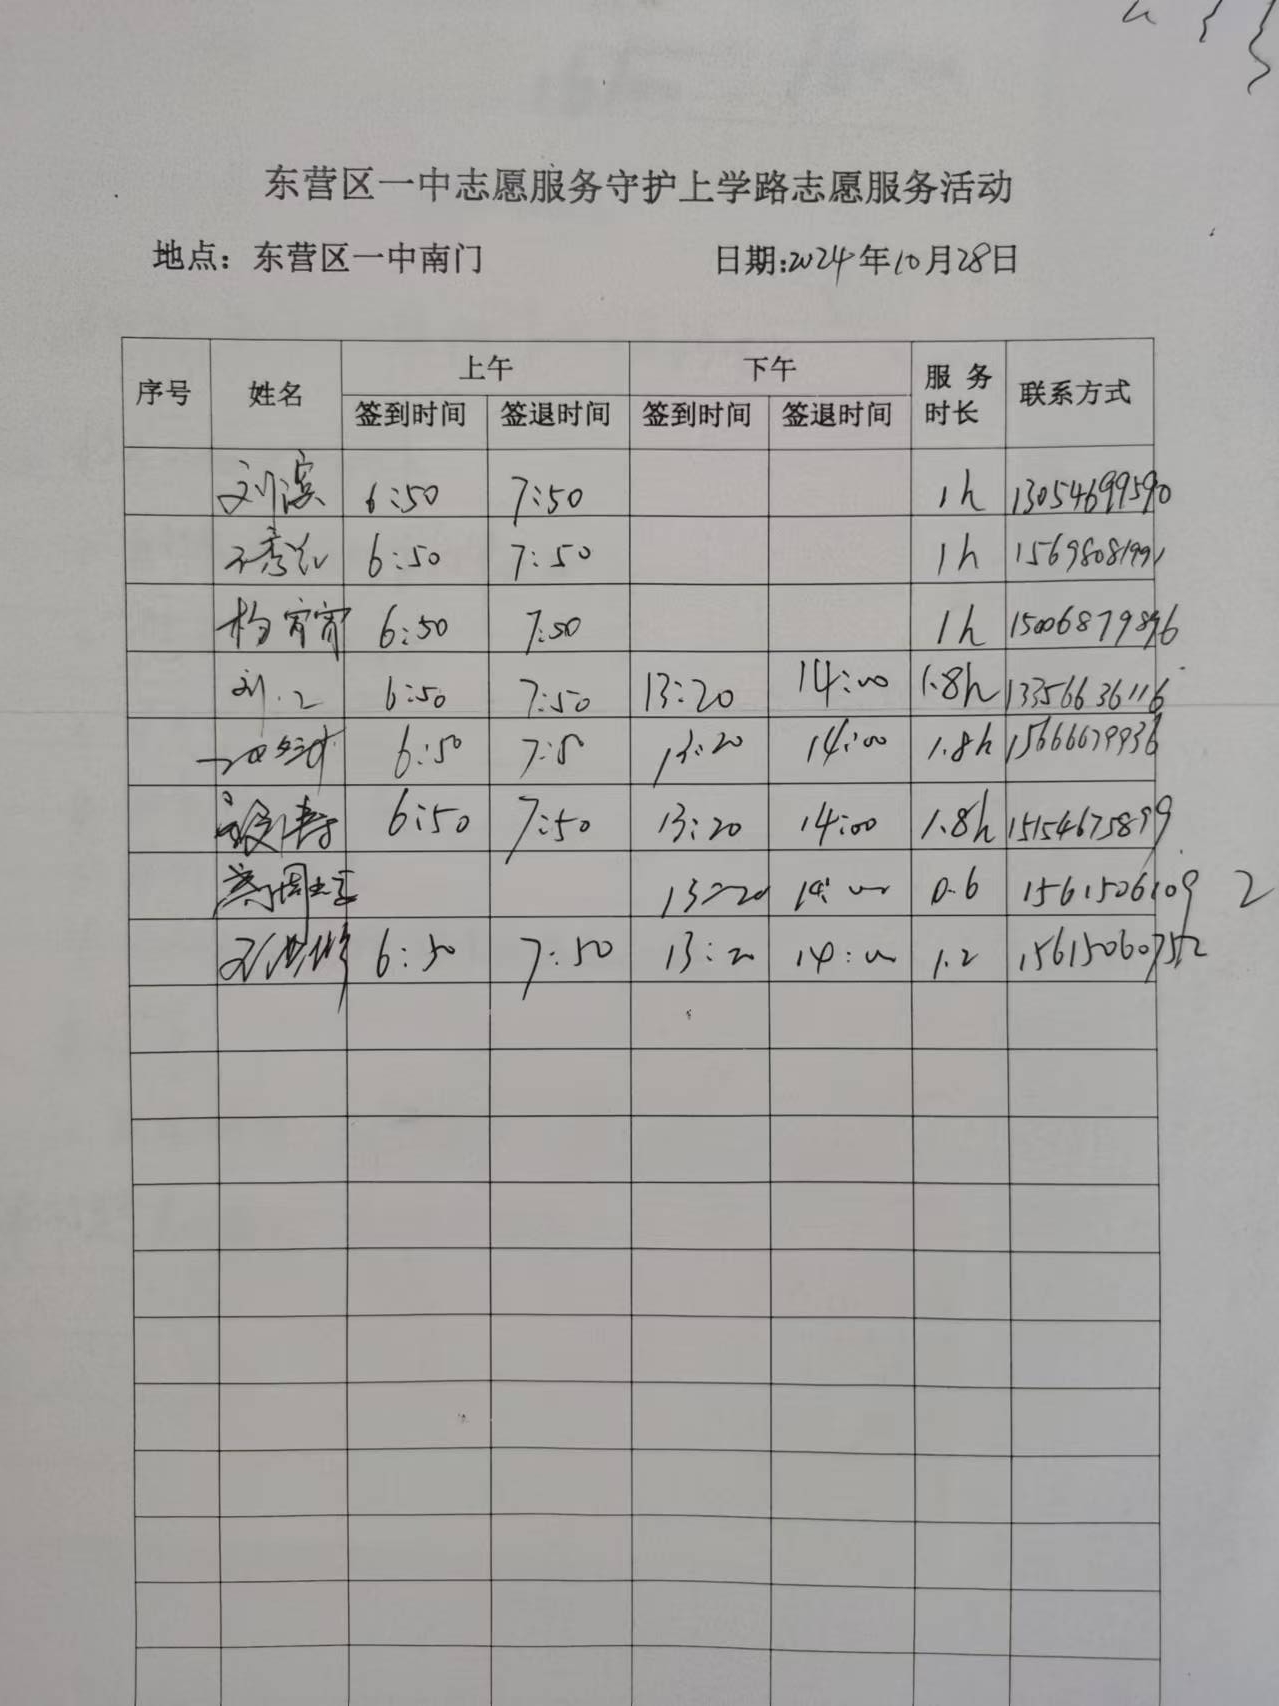 东营区一中志愿服务守护上学路志愿服务活动
地点：东营区一中南门 日期:2024年10月28日
序号 姓名 上午 下午 服务时长 联系方式
签到时间 签退时间 签到时间 签退时间
刘滨 6:50 7:50 1h 13054699590
6:50 7:50 1h
杨宵宵 6:50 7:50 1h
刘 6:50 7:50 13:20 14:00 1.8h 13356636116
6:50 7:50 13:20 14:00 1.8h 15666679936
6:50 7:50 13:20 14:00 1.8h 15154675899
13:20 14:00 0.6 15615061092
6:50 7:50 13:20 14:00 1.2